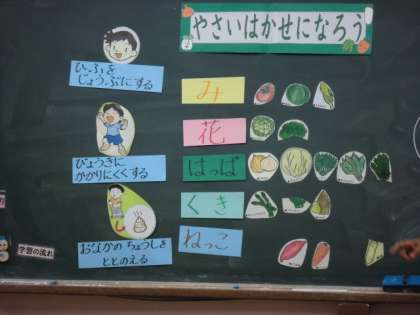 やさいはかせになろう
ひふを
じょうぶにする
み
花
びょうきに
かかりにくくする
はっぱ
くき
おなかのちょうしを
ととのえる
ねっこ
学習の流れ